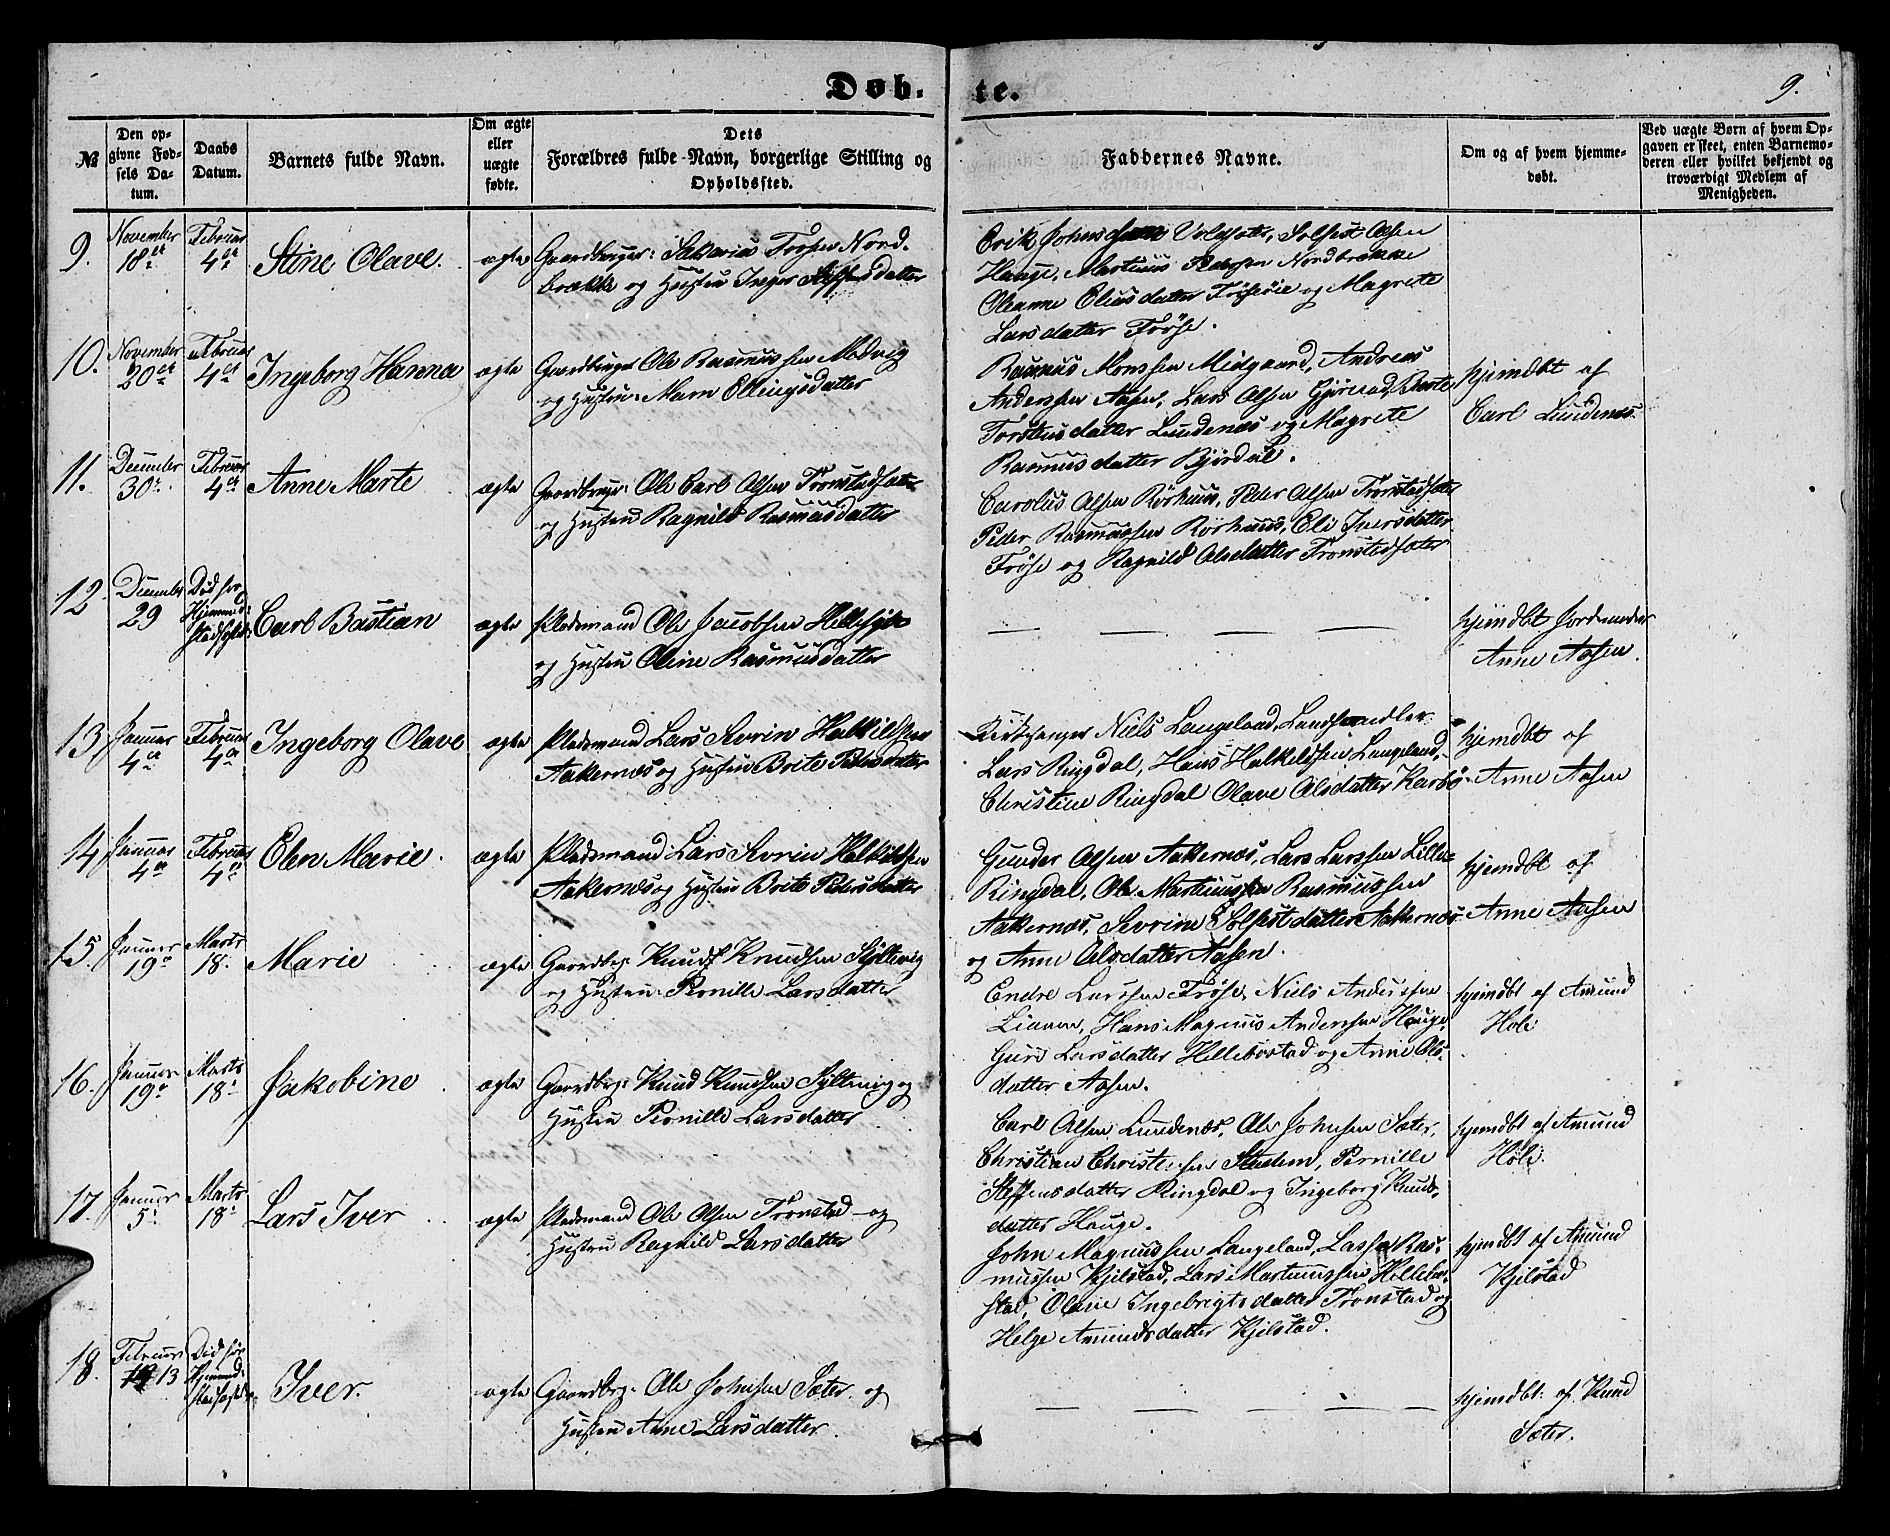 Døb-
te.
9.
№
Den op-
givne Fød-
sels Da-
tum.
Daabs
Datum.
Barnets fulde Navn.
Om ægte
eller
uægte
fødte.
Dets
Forældres fulde Navn, borgerlige Stilling og
Opholdssted.
Faddernes Navne.
Om og af hvem hjemme-
døbt.
Ved uægte Børn af hvem Op-
gaven er skeet, enten Barnemo-
deren eller hvilket bekjendt og
troværdigt Medlem af
Menigheden.
9.
November
18de
Februar
4de
Stine Olave.
ægte
Gaardbruger: Sakarias Nord-
brække og Hustru Inger
Erik Solfest Olsen
Hauge, Martinus Pedersen Nordbrække
Oleanne Eliasdatter og Magrete
Larsdatter Frøse.
10.
November
20de
Februar
4de
Ingeborg Hanna
ægte
Gaardbruger Ole Rasmussen
og Hustru: Marn Ellingsdatter
Rasmus Monssen Midgaard, Andreas
Anderssen Aasen, Lars Olsen
Torstensdatter Lundenæs og Magrete
Rasmusdatter
hjemdbt af
Carl Lundenæs.
11.
December
30te
Februar
4de
Anne Marte
ægte
Gaardbruger: Ole Carl Olsen Tronstadsæter
og Hustru Ragnild Rasmusdatter
Carolus Olsen Rørhuus, Peder Olsen Tronstadsæter
Peder Rasmussen Rørhuus, Eli Iversdatter
Frøse og Ragnild Olsdatter Tronstadsæter
12.
December
29
Død før
Hjemmed:
stadfæst:
Carl Bastian
ægte
Pladsmand Ole Jacobsen
og Hustru Oline Rasmusdatter
hjemdbt Jordemoder
Anne Aasen.
13
Januar
4de
Februar
4de
Ingeborg Olave
ægte
Pladsmand Lars Sevrin Halkildsen
Aakernæs og Hustru Brite Pedersdatter
Kirkesanger Niels Langeland, Landhandler
Lars Ringdal, Hans Halkildsen Langeland,
Christine Ringdal Olave Olsdatter Karbø
hjemdbt af
Anne Aasen
14
Januar
4de
Februar
4de
Elen Marie.
ægte
Pladsmand Lars Sevrin Halkildsen
Aakernæs og Hustru Brite Pedersdatter
Gunder Olsen Aakernæs, Lars Larssen Lille-
Ringdal, Ole Martinussen Rasmussen
Aakernæs, Sevrine Solfestdatter Aakernæs
og Anne Olsdatter Aasen.
hjemdbt af
Anne Aasen
15.
Januar
19de
Marts
18.
Marie
ægte
Gaardbrg: Knud Knudsen Syltevig
og Hustru: Pernille Larsdatter
Endre Larssen Frøse, Niels Anderssen
Hans Magnus Anderssen Hauge,
Guri Larsdatter Hellebostad og Anne Ols-
datter Aasen.
hjemdbt af Amund
Hole
16.
Januar
19de
Marts
18.
Jakobine
ægte
Gaardbrg: Knud Knudsen Syltevig og
Hustru Pernille Larsdatter
Carl Olsen Lundenæs, Ole Johnsen Sæter,
Christian Pernille
Steffensdatter Ringdal og Ingeborg Knuds-
datter Hauge.
hjemdbt af Amund
Hole.
17.
Januar
5.
Marts
18.
Lars Iver
ægte
Pladsmand Ole Olsen Tronstad og
Hustru Ragnild Larsdatter
John Magnussen Langeland, Lasse Ras-
mussen Kjilstad, Lars Martinussen Hellebo-
stad, Olave Ingebrigtsdatter Tronstad og
Helge Amundsdatter Kjilstad.
hjemdbt af Amund
Kjilstad
18.
Februar
13
Død før
Hjemmed:
stadfæst:
Iver.
ægte
Gaardbrg: Ole Johnsen Sæter og
Hustru Anne Larsdatter.
hjemdbt: af Knud
Sæter.